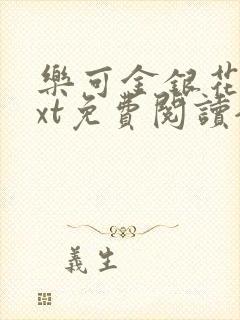 樂可金銀花
xt免費閱讀
義生